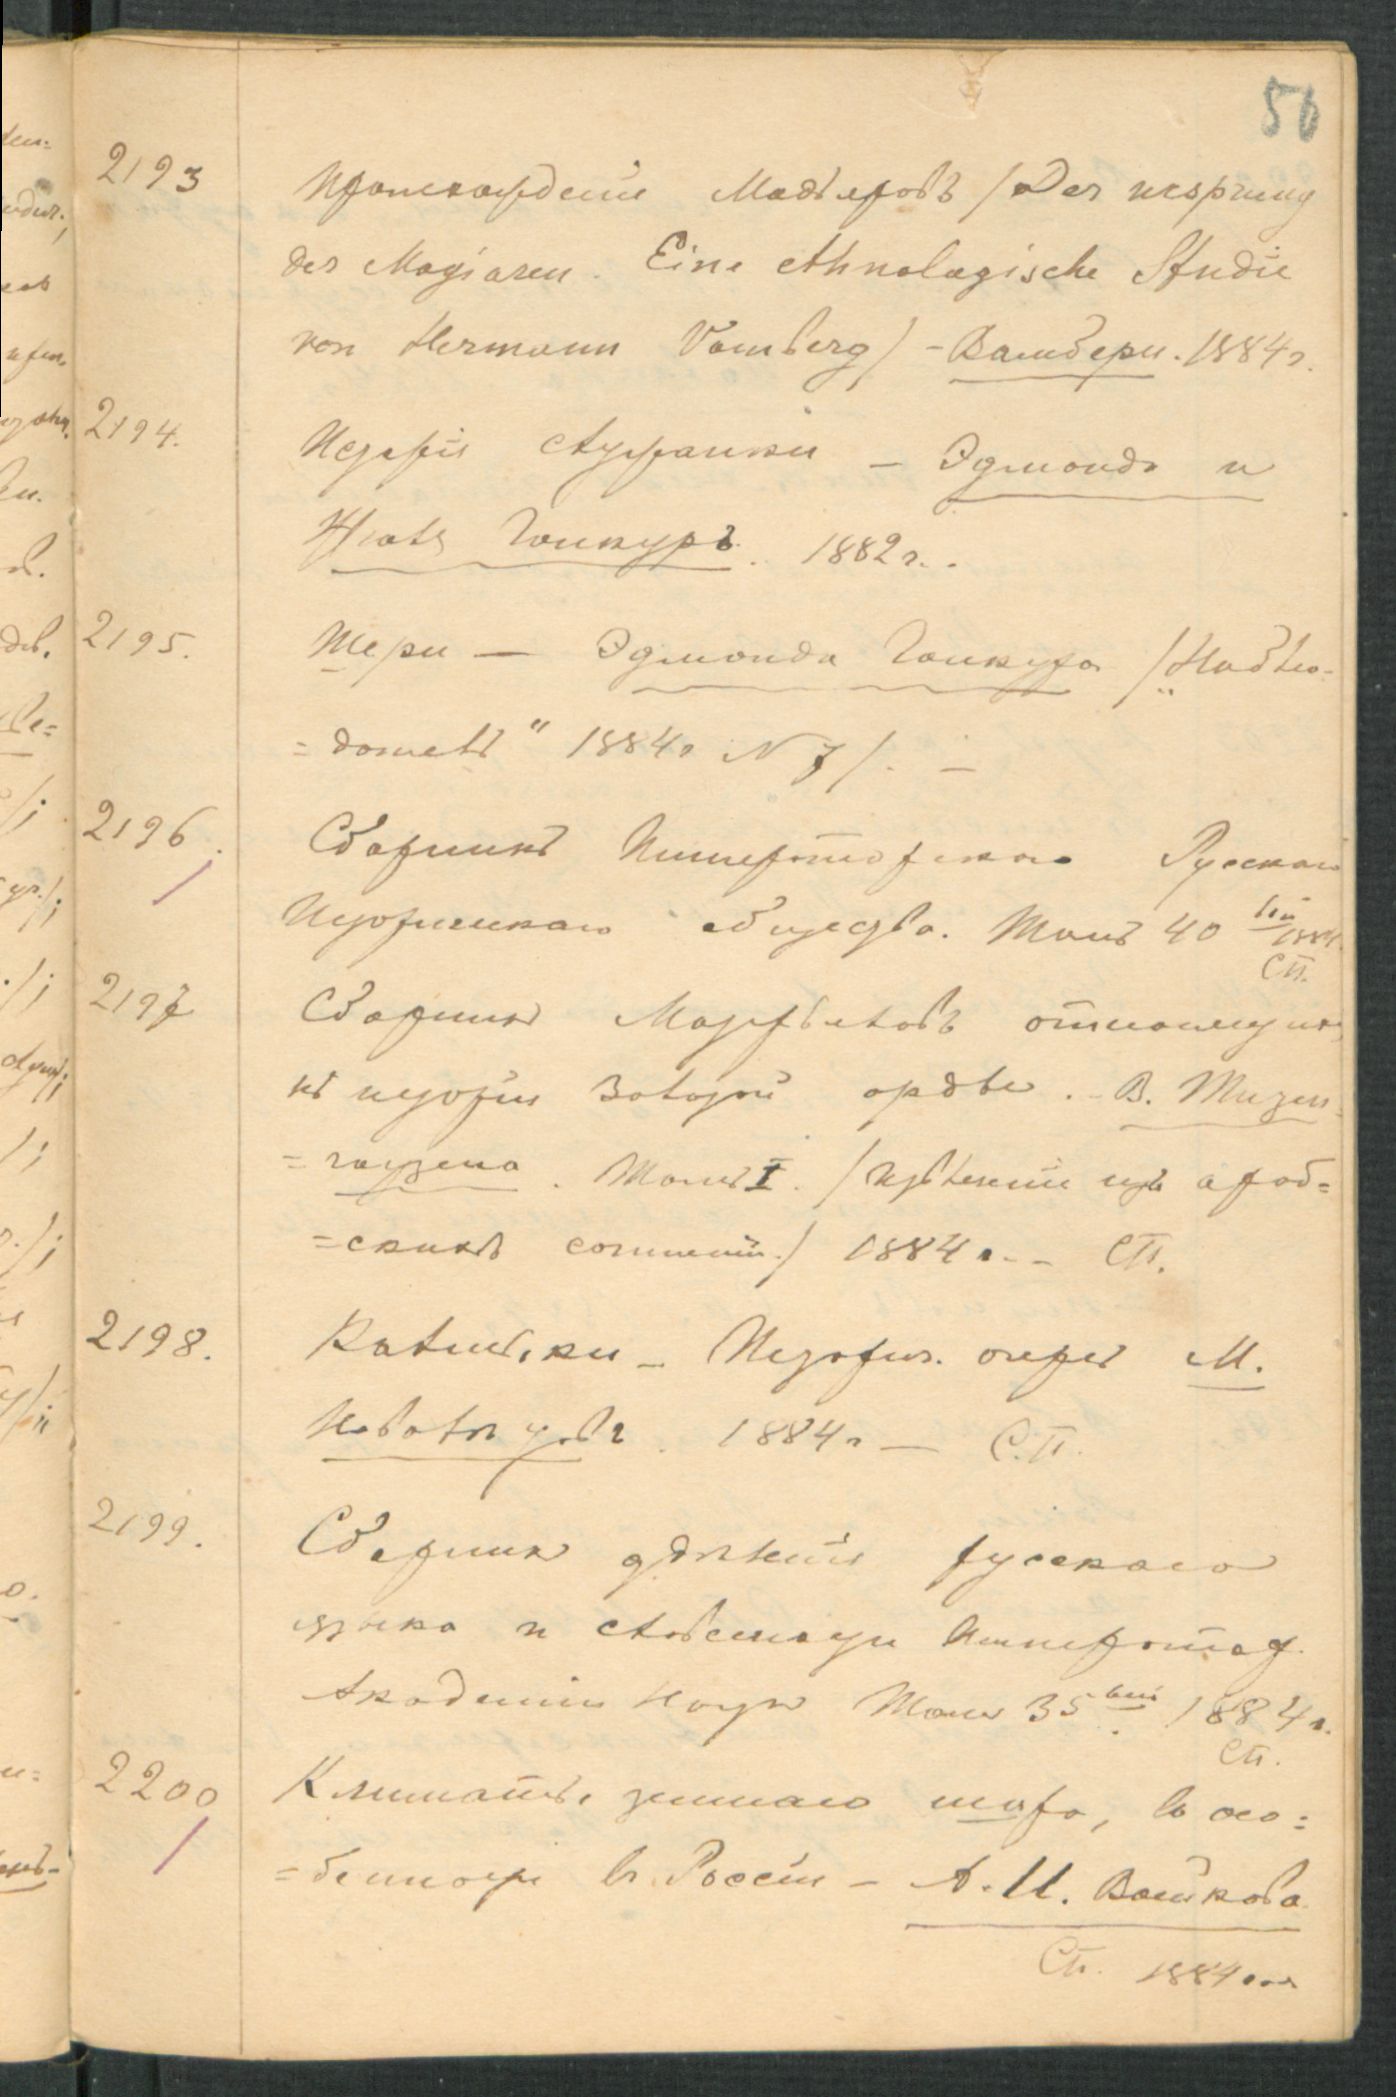 50
2193 Происхожденiе Мадьяровъ /Der ursprung
der Magiaren. Eine ethnologische Studie
von Hermann Vamberg/ - Вамбери. 1884 г.
2194. Исторiя служанки — Эдмонда и
Жюля Гонкуръ. 1882 г..
2195. Шери — Эдмонда Гонкура /„Наблю-
=датель" 1884 г N 7/. —
2196. Сборникъ Императорскаго Русскаго
Историческаго общества. Томъ 40 ый 1884
СП.
2197 Сборникъ Матерьяловъ относящихся
къ исторiи Золотой орды. - В. Тизен-
=гаузена. Томъ I. /Извлеченiя изъ араб=
=скихъ сочиненiй./ 1884 г. - СП.
2198. Калмыки — Историч. очеркъ М.
Новолѣтовъ. 1884 г — С.П.
2199. Сборникъ отдѣленiя русскаго
языка и словесности Император.
Академiи Наукъ Томъ 35 ый 1884 г.
СП.
2200 Климаты земнаго шара, въ осо=
=бенности въ Россiи — А. И. Воейкова
СП. 1884 года